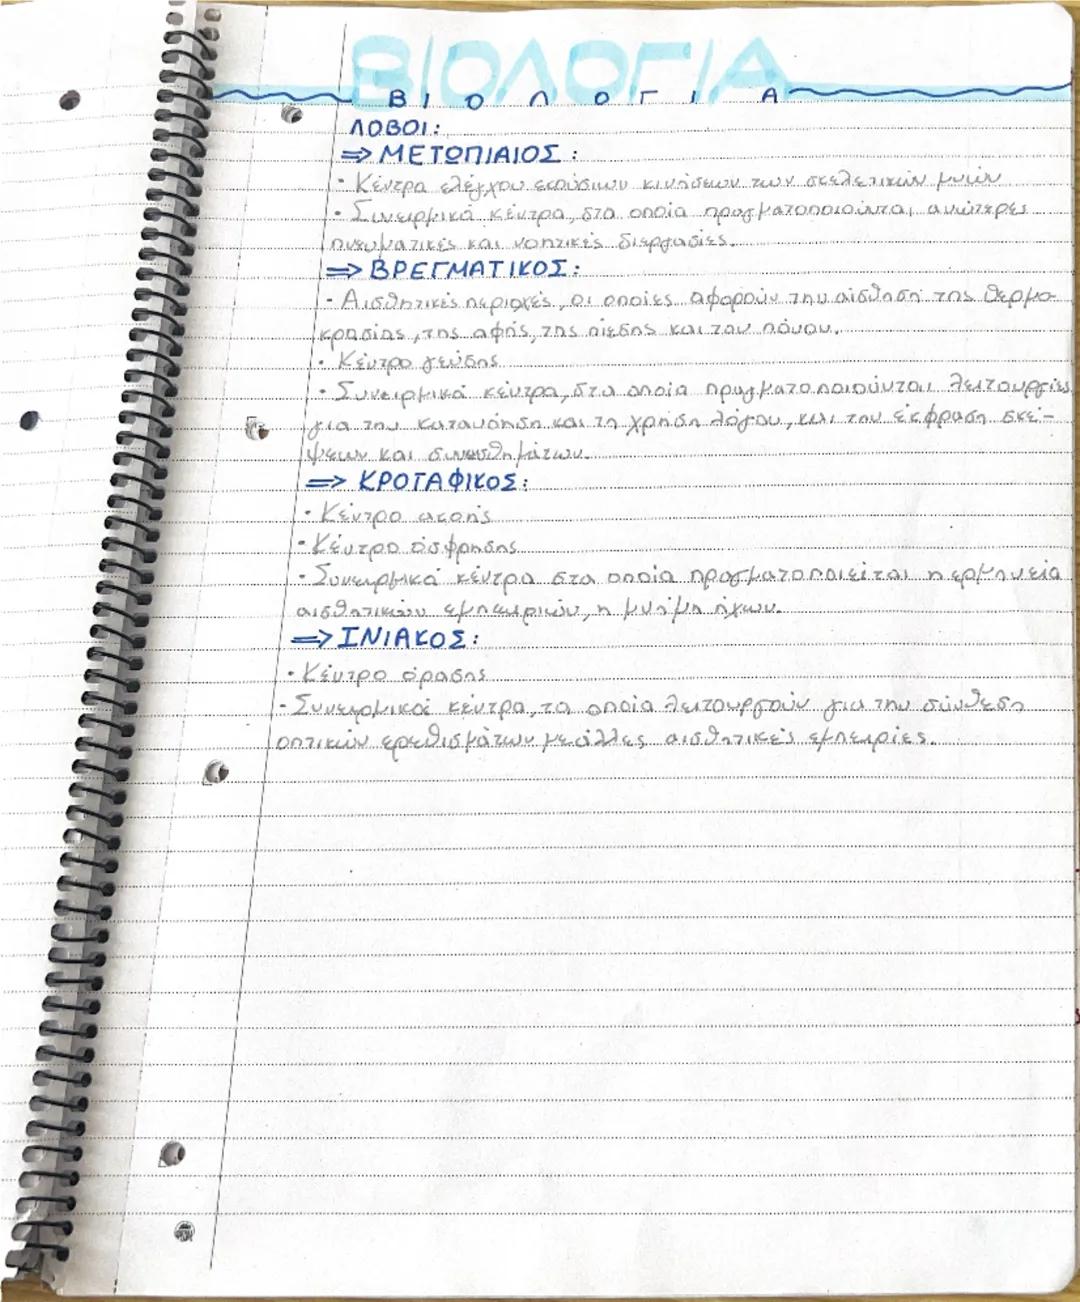 ΒΙΟΛΟΓΙΑ
ΒΙΟΛΟΓΙΑ
ΛΟΒΟΙ:
⇒ ΜΕΤΩΠΙΑΙΟΣ:
· Κέντρα ελέγχου εκούσιων κινήσεων των σκελετικών μυών
· Συνειρμικά κέντρα, στα οποία πραγματοποιούνται ανώτερες
πνευματικές και νοητικές διεργασίες.
⇒ ΒΡΕΓΜΑΤΙΚΟΣ:
· Αισθητικές περιοχές, οι οποίες αφορούν την αίσθηση της θερμο-
κρασίας, της αφής, της πίεσης και του πόνου.
· Κέντρο γεύσης
· Συνειρμικά κέντρα, στα οποία πραγματοποιούνται λειτουργίες
για την κατανόηση και τη χρήση λόγου, και την έκφραση σκέ-
ψεων και συναισθημάτων.
⇒ ΚΡΟΤΑΦΙΚΟΣ:
· Κέντρο ακοής
· Κέντρο όσφρησης
· Συνειρμικά κέντρα στα οποία πραγματοποιείται η ερμηνεία
αισθητικών εμπειριών, η μνήμη ήχων.
⇒ ΙΝΙΑΚΟΣ:
· Κέντρο όρασης
- Συνειρμικά κέντρα, τα οποία λειτουργούν για την σύνθεση
οπτικών ερεθισμάτων με άλλες αισθητικές εμπειρίες.